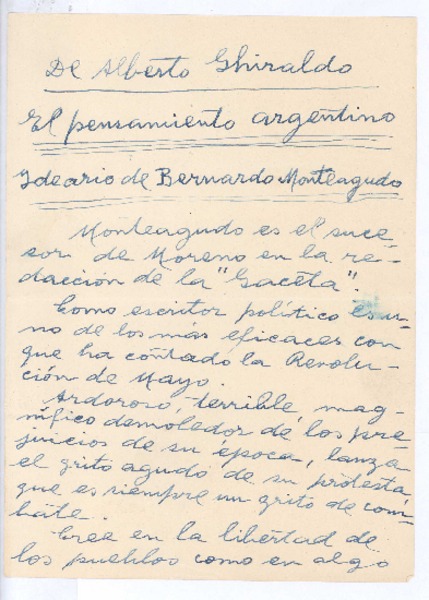 De Alberto Ghiraldo
El pensamiento argentino
Ideario de Bernardo Monteagudo
Monteagudo es el suce-
sor de Moreno en la re-
dacción de la "Gaceta".
Como escritor político es u-
no de los más eficaces con
que ha contado la Revolu-
ción de Mayo.
Ardoroso, terrible, mag-
nífico demoledor de los pre-
juicios de su época, lanza
el grito agudo de su protesta,
que es siempre un grito de com-
bate.
Cree en la libertad de
los pueblos como en algo